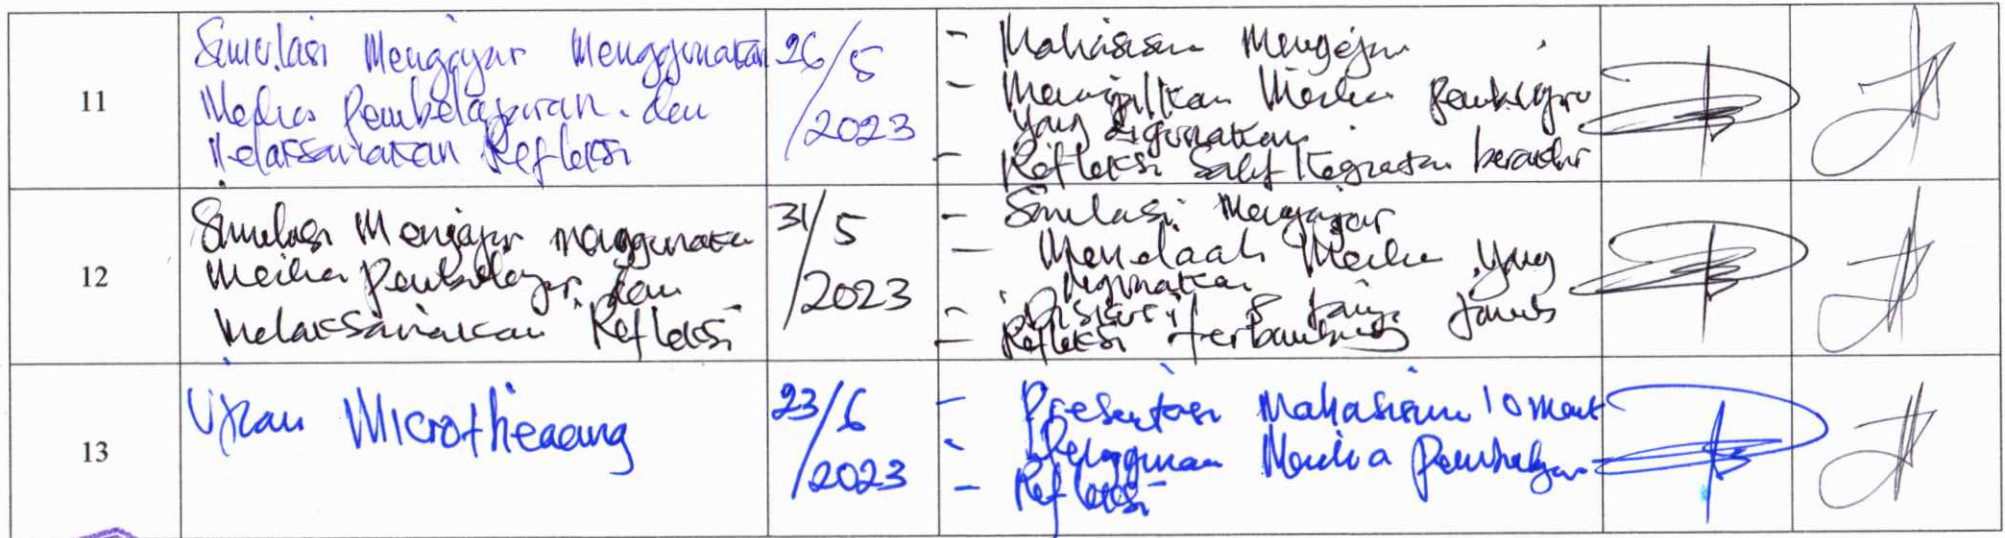 11
Simulasi Mengajar Menggunakan
Media Pembelajaran dan
Melaksanakan Refleksi
26/5
/2023
- Mahasiswa Mengajar
- Menampilkan Media Pembelajaran
yang digunakan
- Refleksi Saat Kegiatan berakhir
12
Simulasi Mengajar menggunakan
Media Pembelajar dan
Melaksanakan Refleksi
31/5
/2023
- Simulasi Mengajar
- Menelaah Media yang
digunakan
- Diskusi & tanya Jawab
- Refleksi
13
Ujian Microtheaang
23/6
/2023
- Presentasi Mahasiswa 10 Menit
- Penggunaan Media Pembelajar
- Refleksi